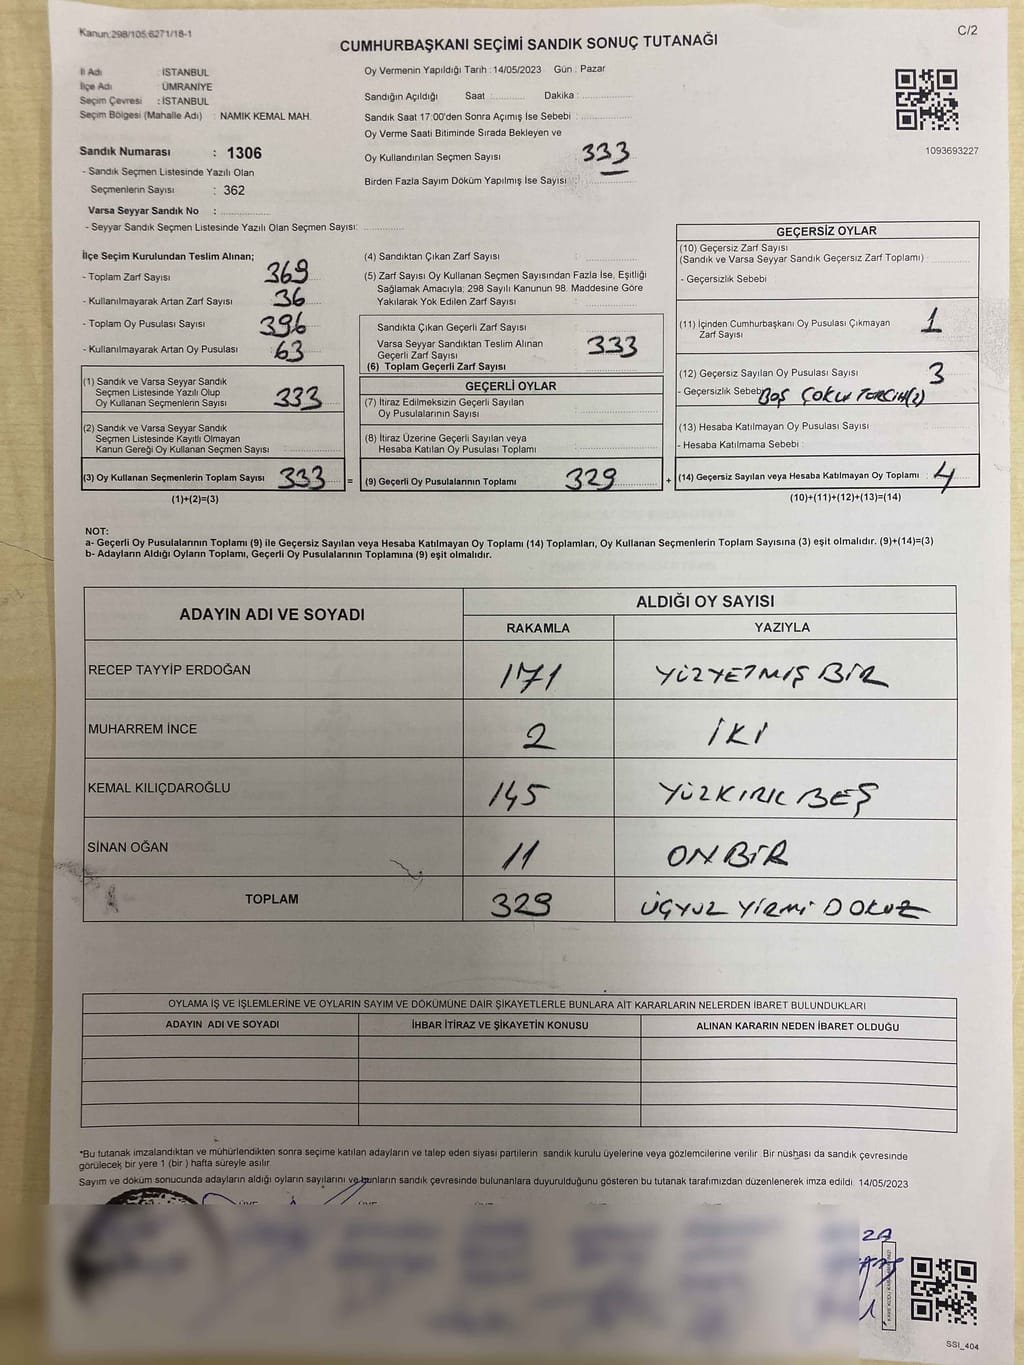 Kanun:298/105;6271/18-1
C/2
CUMHURBAŞKANI SEÇİMİ SANDIK SONUÇ TUTANAĞI
İl Adı : İSTANBUL
İlçe Adı : ÜMRANİYE
Seçim Çevresi : İSTANBUL
Seçim Bölgesi (Mahalle Adı) : NAMIK KEMAL MAH.
Sandık Numarası : 1306
- Sandık Seçmen Listesinde Yazılı Olan
Seçmenlerin Sayısı : 362
Varsa Seyyar Sandık No :
- Seyyar Sandık Seçmen Listesinde Yazılı Olan Seçmen Sayısı:
Oy Vermenin Yapıldığı Tarih : 14/05/2023 Gün : Pazar
Sandığın Açıldığı Saat : Dakika :
Sandık Saat 17:00'den Sonra Açımış İse Sebebi :
Oy Verme Saati Bitiminde Sırada Bekleyen ve
Oy Kullandırılan Seçmen Sayısı 333
Birden Fazla Sayım Döküm Yapılmış İse Sayısı :
1093693227
İlçe Seçim Kurulundan Teslim Alınan;
- Toplam Zarf Sayısı 369
- Kullanılmayarak Artan Zarf Sayısı 36
- Toplam Oy Pusulası Sayısı 396
- Kullanılmayarak Artan Oy Pusulası 63
(1) Sandık ve Varsa Seyyar Sandık
Seçmen Listesinde Yazılı Olup
Oy Kullanan Seçmenlerin Sayısı 333
(2) Sandık ve Varsa Seyyar Sandık
Seçmen Listesinde Kayıtlı Olmayan
Kanun Gereği Oy Kullanan Seçmen Sayısı
(3) Oy Kullanan Seçmenlerin Toplam Sayısı 333 =
(1)+(2)=(3)
(4) Sandıktan Çıkan Zarf Sayısı :
(5) Zarf Sayısı Oy Kullanan Seçmen Sayısından Fazla İse, Eşitliği
Sağlamak Amacıyla; 298 Sayılı Kanunun 98. Maddesine Göre
Yakılarak Yok Edilen Zarf Sayısı :
Sandıkta Çıkan Geçerli Zarf Sayısı
Varsa Seyyar Sandıktan Teslim Alınan
Geçerli Zarf Sayısı 333
(6) Toplam Geçerli Zarf Sayısı
GEÇERLİ OYLAR
(7) İtiraz Edilmeksizin Geçerli Sayılan
Oy Pusulalarının Sayısı
(8) İtiraz Üzerine Geçerli Sayılan veya
Hesaba Katılan Oy Pusulası Toplamı
(9) Geçerli Oy Pusulalarının Toplamı 329 +
GEÇERSİZ OYLAR
(10) Geçersiz Zarf Sayısı
(Sandık ve Varsa Seyyar Sandık Geçersiz Zarf Toplamı) :
- Geçersizlik Sebebi :
(11) İçinden Cumhurbaşkanı Oy Pusulası Çıkmayan
Zarf Sayısı 1
(12) Geçersiz Sayılan Oy Pusulası Sayısı 3
- Geçersizlik Sebebi BOŞ ÇOKLU TERCİH(2)
(13) Hesaba Katılmayan Oy Pusulası Sayısı :
- Hesaba Katılmama Sebebi :
(14) Geçersiz Sayılan veya Hesaba Katılmayan Oy Toplamı : 4
(10)+(11)+(12)+(13)=(14)
NOT:
a- Geçerli Oy Pusulalarının Toplamı (9) ile Geçersiz Sayılan veya Hesaba Katılmayan Oy Toplamı (14) Toplamları, Oy Kullanan Seçmenlerin Toplam Sayısına (3) eşit olmalıdır. (9)+(14)=(3)
b- Adayların Aldığı Oyların Toplamı, Geçerli Oy Pusulalarının Toplamına (9) eşit olmalıdır.
ADAYIN ADI VE SOYADI ALDIĞI OY SAYISI
RAKAMLA YAZIYLA
RECEP TAYYİP ERDOĞAN 171 YÜZYETMİŞ BİR
MUHARREM İNCE 2 İKİ
KEMAL KILIÇDAROĞLU 145 YÜZKIRK BEŞ
SİNAN OĞAN 11 ONBİR
TOPLAM 329 ÜÇYUZ YİRMİ DOKUZ
OYLAMA İŞ VE İŞLEMLERİNE VE OYLARIN SAYIM VE DÖKÜMÜNE DAİR ŞİKAYETLERLE BUNLARA AİT KARARLARIN NELERDEN İBARET BULUNDUKLARI
ADAYIN ADI VE SOYADI İHBAR İTİRAZ VE ŞİKAYETİN KONUSU ALINAN KARARIN NEDEN İBARET OLDUĞU
*Bu tutanak imzalandıktan ve mühürlendikten sonra seçime katılan adayların ve talep eden siyasi partilerin sandık kurulu üyelerine veya gözlemcilerine verilir. Bir nüshası da sandık çevresinde
görülecek bir yere 1 (bir ) hafta süreyle asılır.
Sayım ve döküm sonucunda adayların aldığı oyların sayılarını ve bunların sandık çevresinde bulunanlara duyurulduğunu gösteren bu tutanak tarafımızdan düzenlenerek imza edildi. 14/05/2023
SSI_404